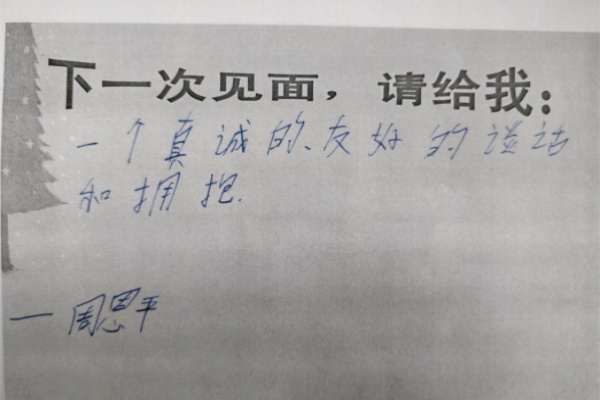 下一次见面，请给我：
一个真诚的、友好的谈话
和拥抱.
— 周恩平